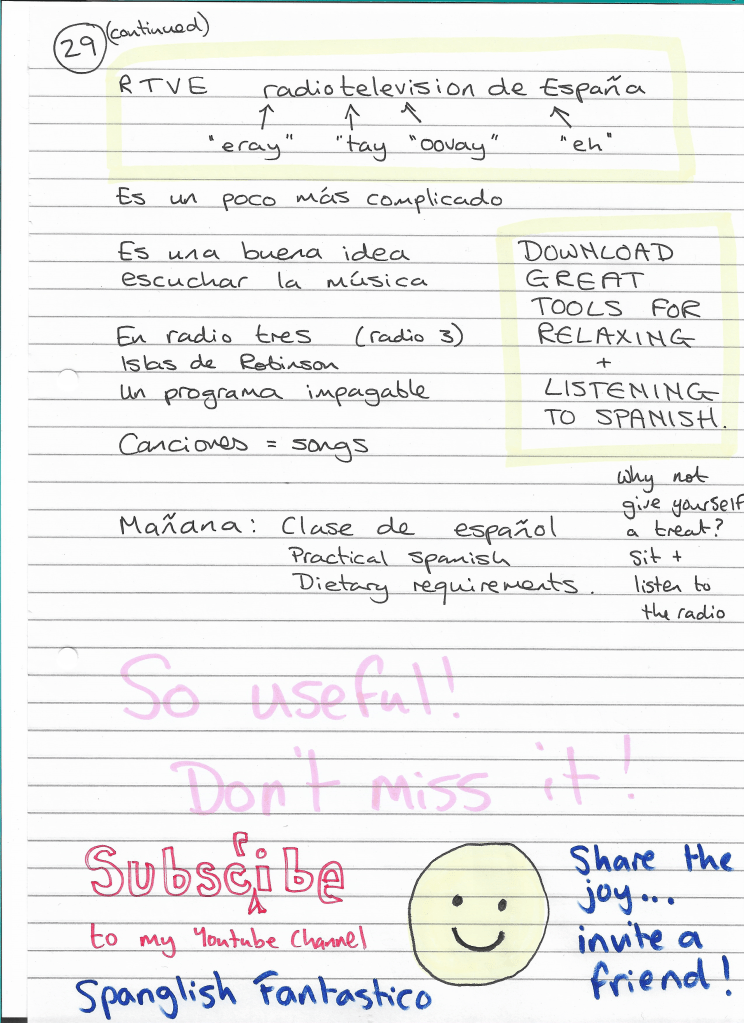 29 (continued)
RTVE radiotelevision de España
"eray" "tay "oovay" "eh"
Es un poco más complicado
Es una buena idea
escuchar la música
DOWNLOAD
GREAT
TOOLS FOR
RELAXING
+
LISTENING
TO SPANISH.
En radio tres (radio 3)
Islas de Robinson
Un programa impagable
Canciones = songs
Why not
give yourself
a treat?
Sit +
listen to
the radio
Mañana: Clase de español
Practical spanish
Dietary requirements.
So useful!
Don't miss it!
Subscribe
to my Youtube Channel
Spanglish Fantastico
Share the
joy...
invite a
friend!